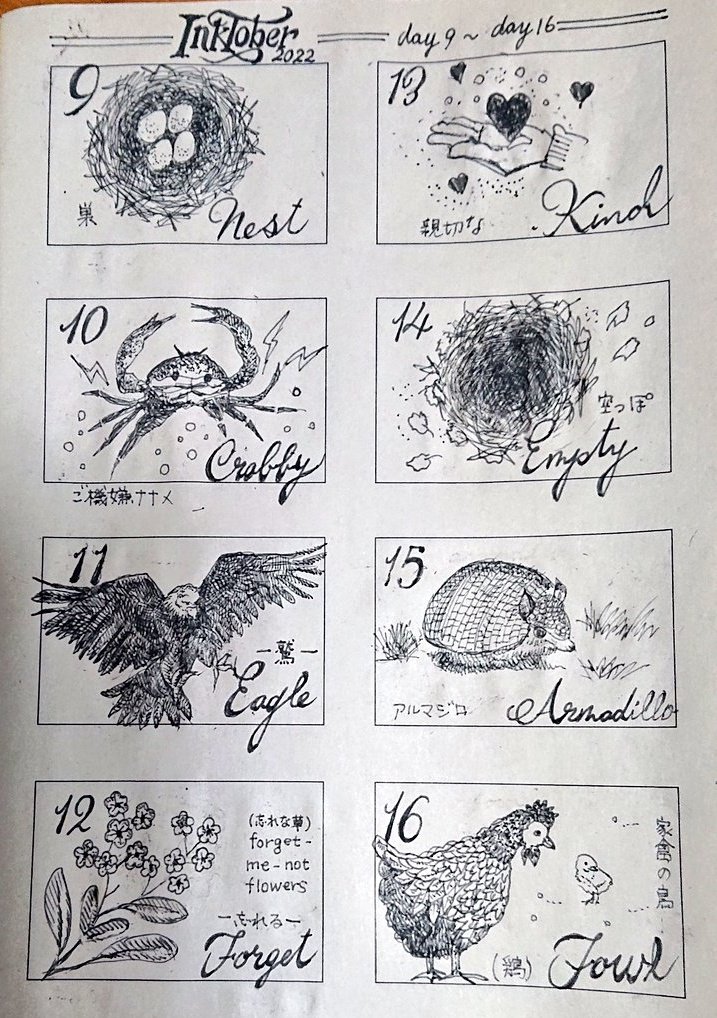 InkTober
2022
day 9 ~ day 16
9
巣
Nest
10
Crabby
ご機嫌ナナメ
11
ー鷲ー
Eagle
12
(忘れな草)
forget-
me-not
flowers
ー忘れるー
Forget
13
親切な
Kind
14
空っぽ
Empty
15
アルマジロ
Armadillo
16
家禽の鳥
(鶏)
Fowl